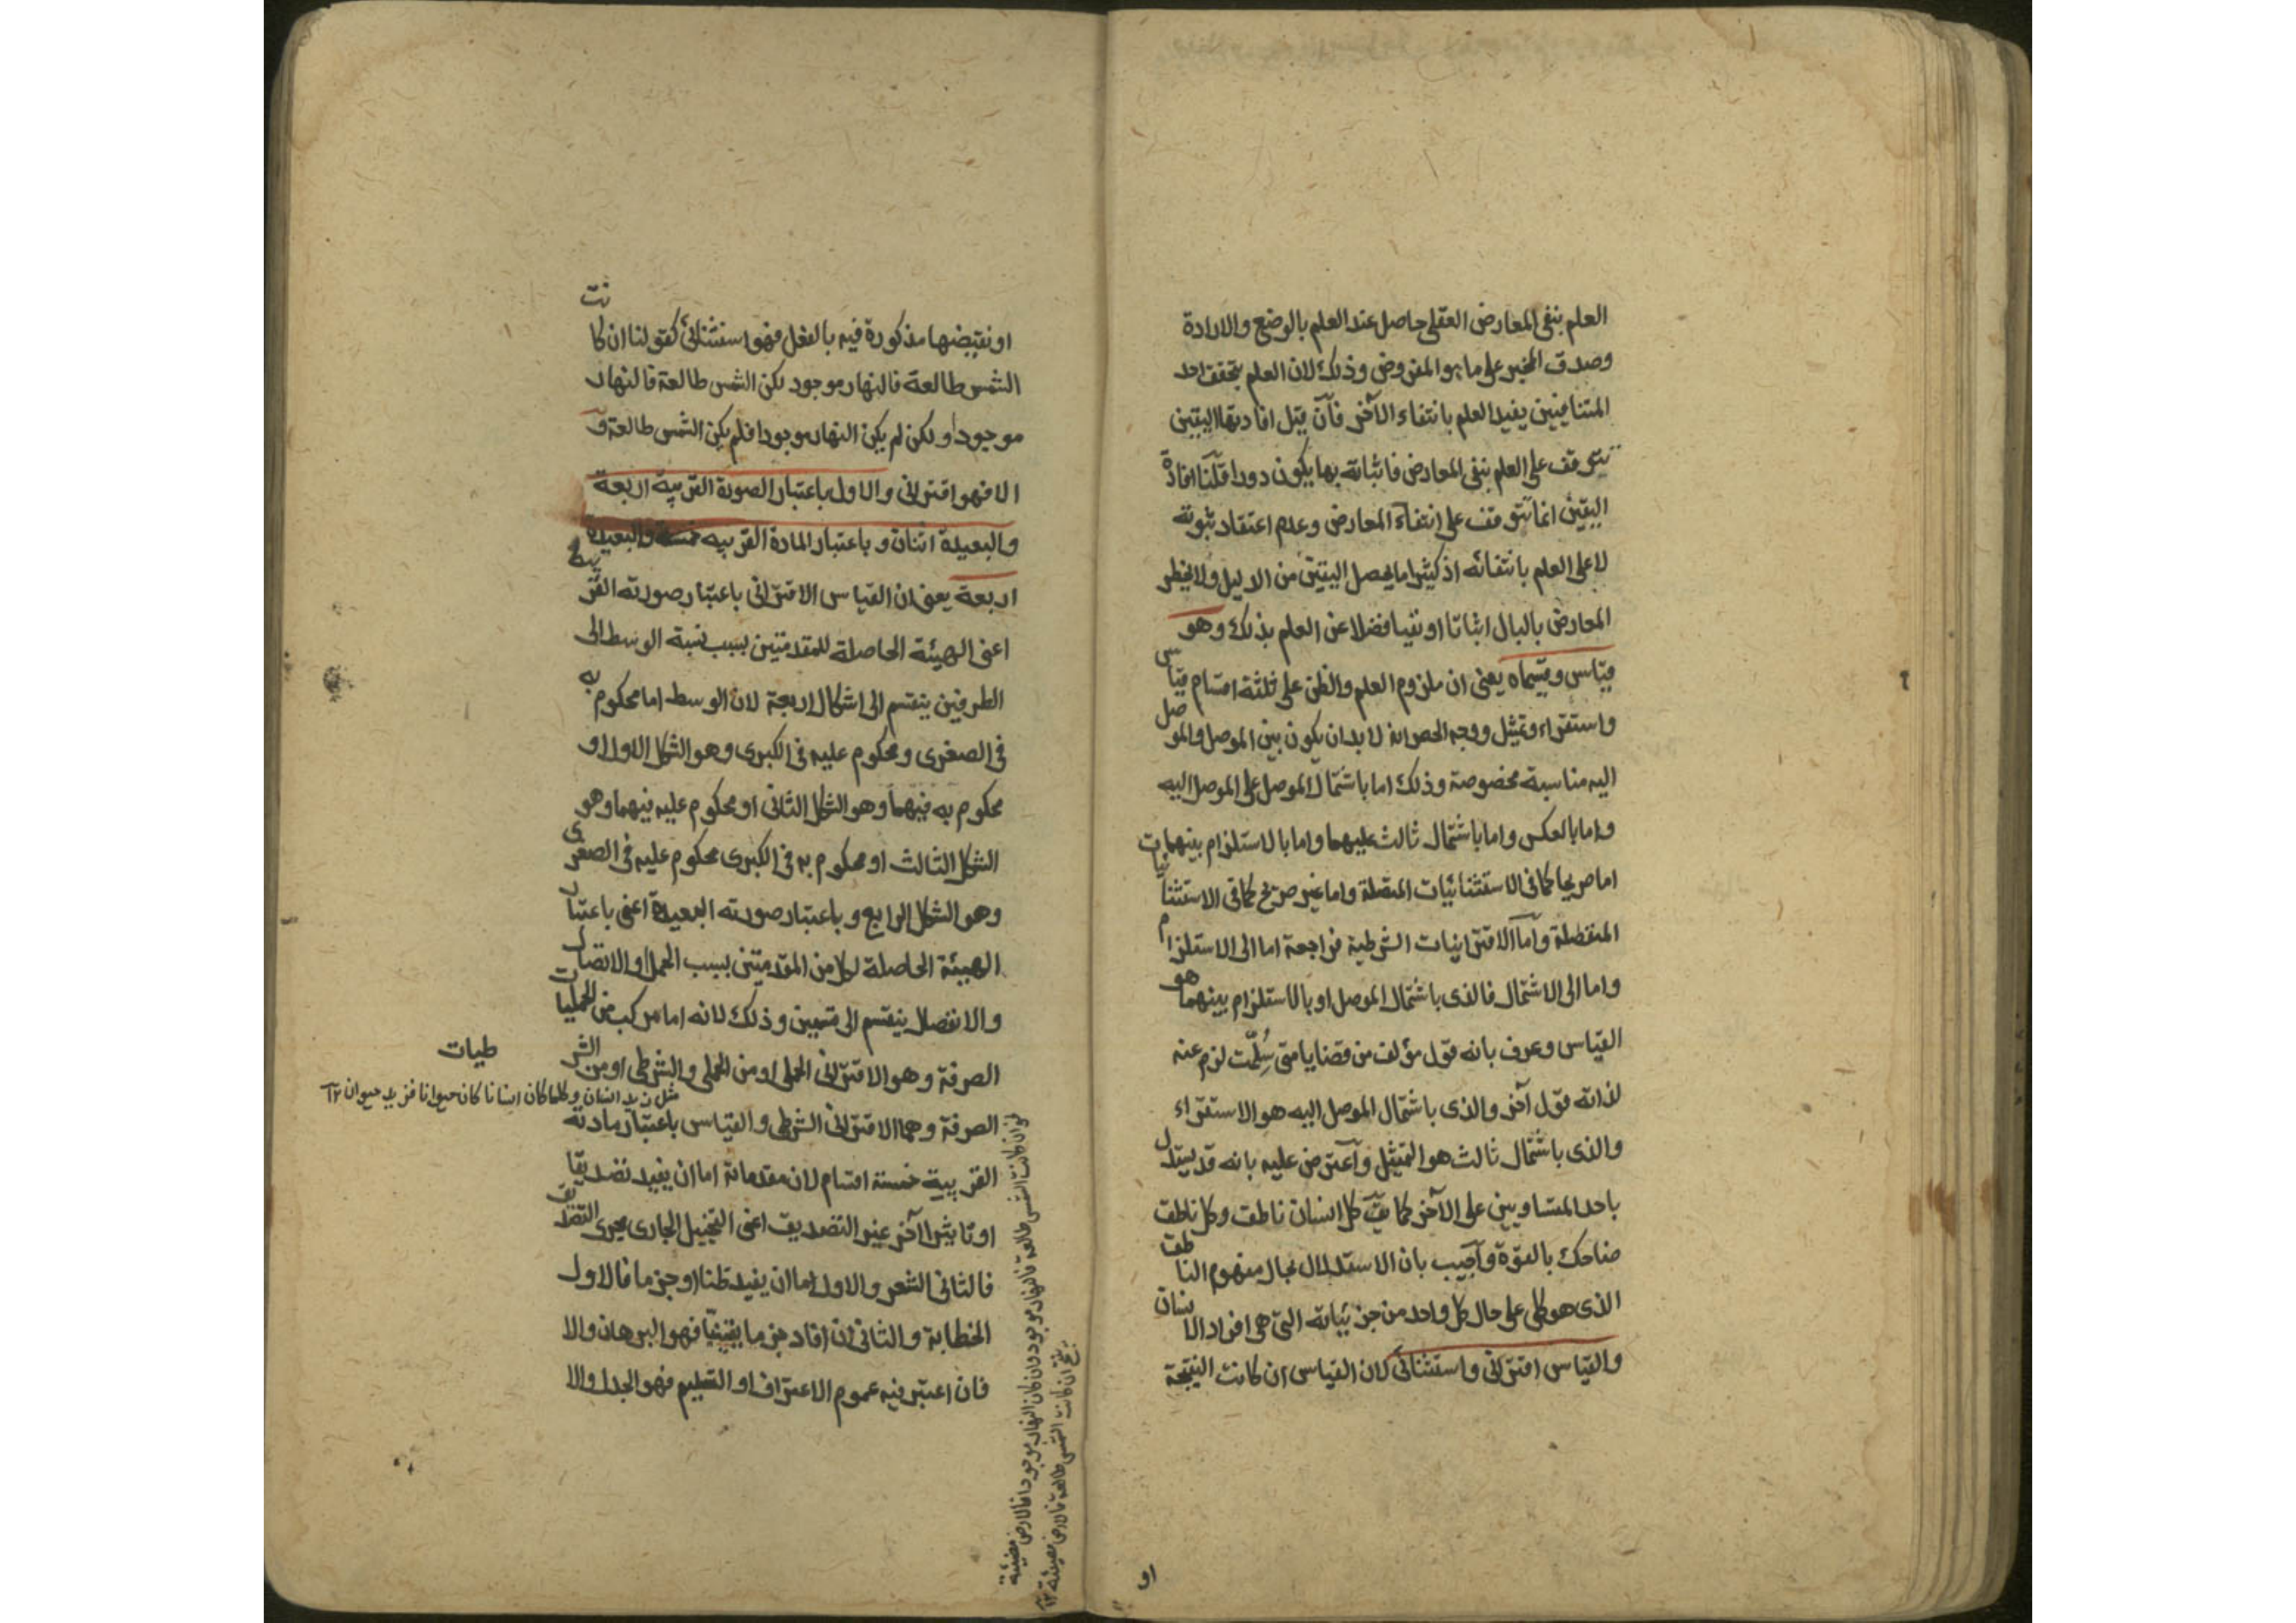 العلم بنفى المعارض العقلى حاصل عند العلم بالوضع والارادة
وصدق المخبر على ما هو المفروض وذلك لان العلم بتحقق احد
المتنافيين يفيد العلم بانتفاء الآخر فآن قيل افادتها اليقين
تتوقف على العلم بنفى المعارض فاثباته بها يكون دورا قلنا افادة
اليقين انما تتوقف على انتفاء المعارض وعدم اعتقاد ثبوته
لا على العلم بانتفائه اذ كثيرا ما يحصل اليقين من الدليل ولا يخطر
المعارض بالبال اثباتا او نفيا فضلا عن العلم بذلك وهو
قياس وقسيماه يعنى ان ملزوم العلم والظن على ثلثة اقسام قياس
واستقراء وتمثيل ووجه الحصر انه لا بد ان يكون بين الموصل والموصل
اليه مناسبة مخصوصة وذلك اما باشتمال الموصل على الموصل اليه
واما بالعكس واما باشتمال ثالث عليهما واما بالاستلزام بينهما
اما صريحا كما فى الاستثنائيات المتصلة واما غير صريح كما فى الاستثنائيات
المنفصلة وآما الاقترانيات الشرطية فراجعة اما الى الاستلزام
واما الى الاشتمال فالذى باشتمال الموصل او بالاستلزام بينهما هو
القياس وعرف بانه قول مؤلف من قضايا متى سُلّمت لزم عنه
لذاته قول آخر والذى باشتمال الموصل اليه هو الاستقراء
والذى باشتمال ثالث هو التمثيل وآعترض عليه بانه قد يستدل
باحد المتساويين على الآخر كما يقٓ كل انسان ناطق وكل ناطق
ضاحك بالقوة وآجيب بان الاستدلال بحال مفهوم الناطق
الذى هو كلى على حال كل واحد من جزئياته التى هى افراد الانسان
والقياس اقترانى واستثنائى لان القياس ان كانت النتيجة
او نقيضها مذكورة فيه بالفعل فهو استثنائى كقولنا ان كانت
الشمس طالعة فالنهار موجود لكن الشمس طالعة فالنهار
موجود او لكن لم يكن النهار موجودا فلم يكن الشمس طالعة و
الا فهو اقترانى والاول باعتبار الصورة القريبة اربعة
والبعيدة اثنان و باعتبار المادة القريبه خمسة والبعيدة
اربعة يعنى ان القياس الاقترانى باعتبار صورته القريبة
اعنى الهيئة الحاصلة للمقدمتين بسبب نسبة الوسط الى
الطرفين ينقسم الى اشكال اربعة لان الوسط اما محكوم به
فى الصغرى ومحكوم عليه فى الكبرى وهو الشكل الاول او
محكوم به فيهما وهو الشكل الثانى او محكوم عليه فيهما وهو
الشكل الثالث او محكوم به فى الكبرى محكوم عليه فى الصغرى
وهو الشكل الرابع و باعتبار صورته البعيدة اعنى باعتبار
الهيئة الحاصلة لكل من المقدمتين بسبب الحمل او الاتصال
والانفصال ينقسم الى قسمين وذلك لانه اما مركب من الحمليات
الصرفة وهو الاقترانى الحملى او من الحملى والشرطى او من الشرطيات
مثل زيد انسان وكلما كان انسانا كان حيوانا فزيد حيوان ١٢
الصرفة وهما الاقترانى الشرطى والقياس باعتبار مادته
القريبية خمسة اقسام لان مقدماته اما ان يفيد تصديقا
او تاثيرا آخر غير التصديق اعنى التخييل الجارى مجرى التصديق
فالثانى الشعر والاول اما ان يفيد ظنا او جزما فالاول
الخطابة والثانى ان افاد جزما يقينيا فهو البرهان والا
فان اعتبر فيه عموم الاعتراف او التسليم فهو الجدل والا
كلما كانت الشمس طالعة فالنهار موجود وان كان النهار موجودا فالارض مضيئة
ينتج ان كانت الشمس طالعة فالارض مضيئة ١٢